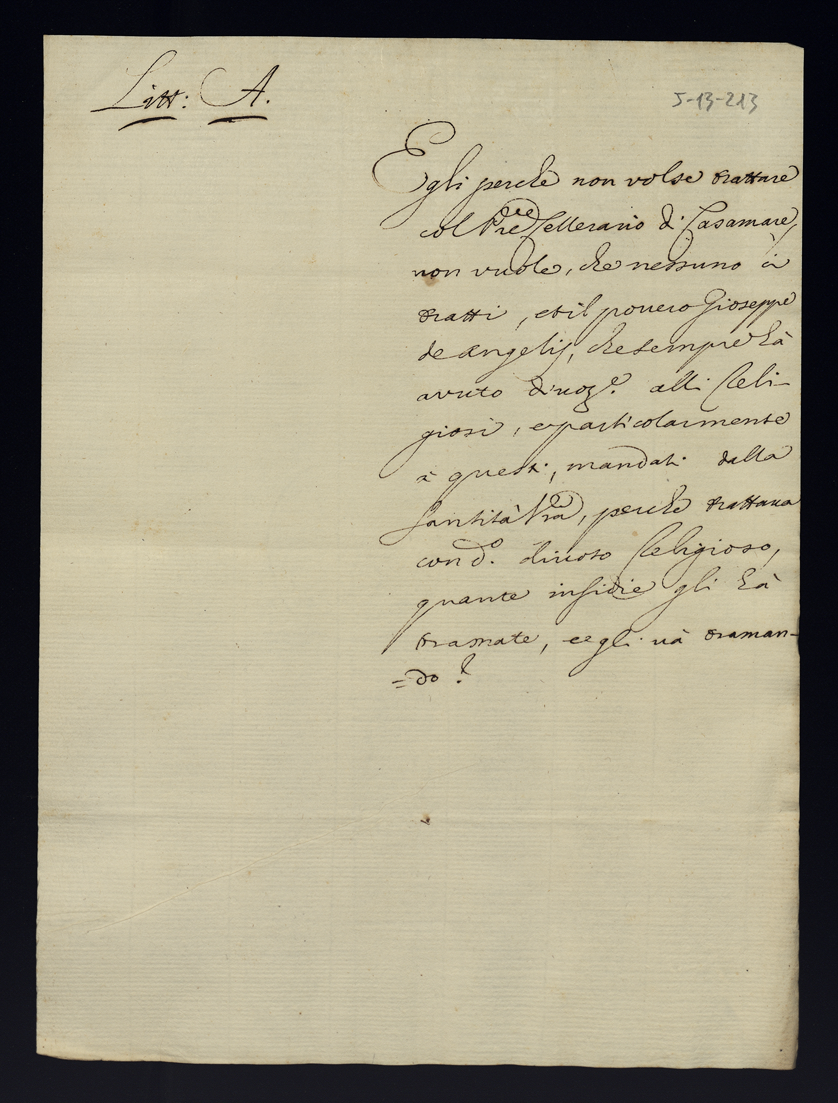 Litt: A.
5-13-213
Egli perche non volse trattare
col Pre Cellerario di Casamare,
non vuole, che nessuno ci
tratti, et il povero Gioseppe
de Angelis, che sempre hà
avuto divoz.e alli Reli-
giosi, e particolarmente
à questi, mandati dalla
Santità Vra, perche trattava
con d.o divoto Religioso,
quante insidie gli hà
tramate, e egli và traman-
=do?